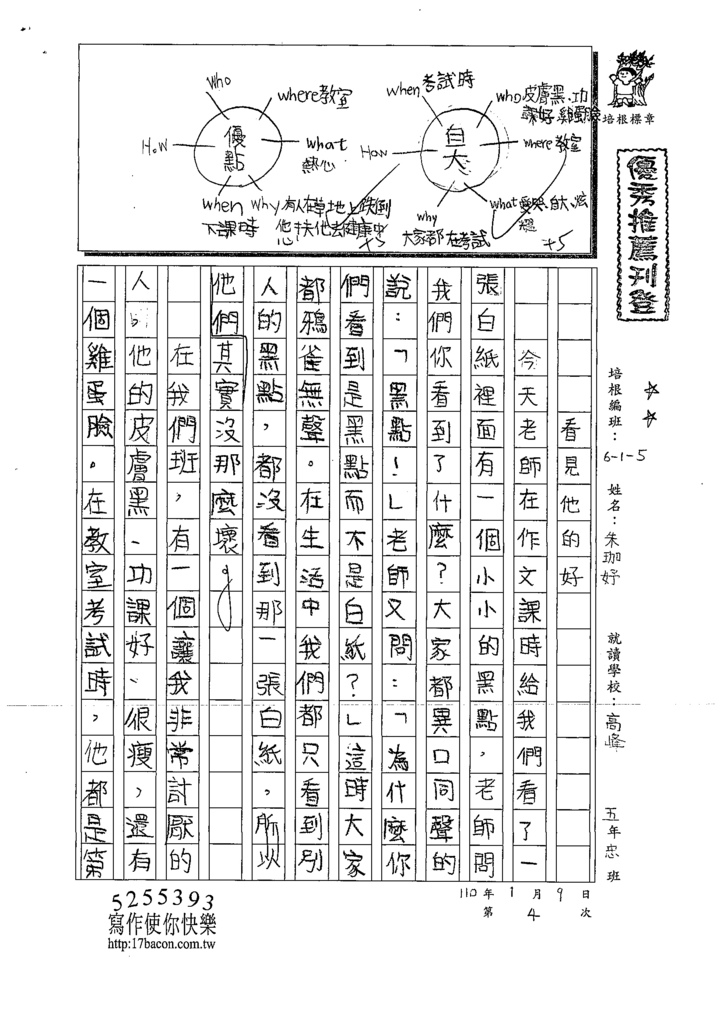 Who
where教室
what
熱心
why 有人在草地上跌倒
他扶他去健康中心
when
下課時
HoW
優點
+5
when考試時
who皮膚黑、功
課好、雞蛋臉
where教室
what愛哭、自大、炫
why
大家都在考試
How
自大
+5
培根標章
優秀推薦刊登
培根編班：6-1-5
姓名：朱珈妤
就讀學校：高峰
五年忠班
110年1月9日
第4次
看見他的好
今天老師在作文課時給我們看了一
張白紙裡面有一個小小的黑點，老師問
我們你看到了什麼？大家都異口同聲的
說：「黑點！」老師又問：「為什麼你
們看到是黑點而不是白紙？」這時大家
都鴉雀無聲。在生活中我們都只看到別
人的黑點，都沒看到那一張白紙，所以
他們其實沒那麼壞。
在我們班，有一個讓我非常討厭的
人他的皮膚黑、功課好、很瘦，還有
一個雞蛋臉。在教室考試時，他都是第
5255393
寫作使你快樂
http:17bacon.com.tw